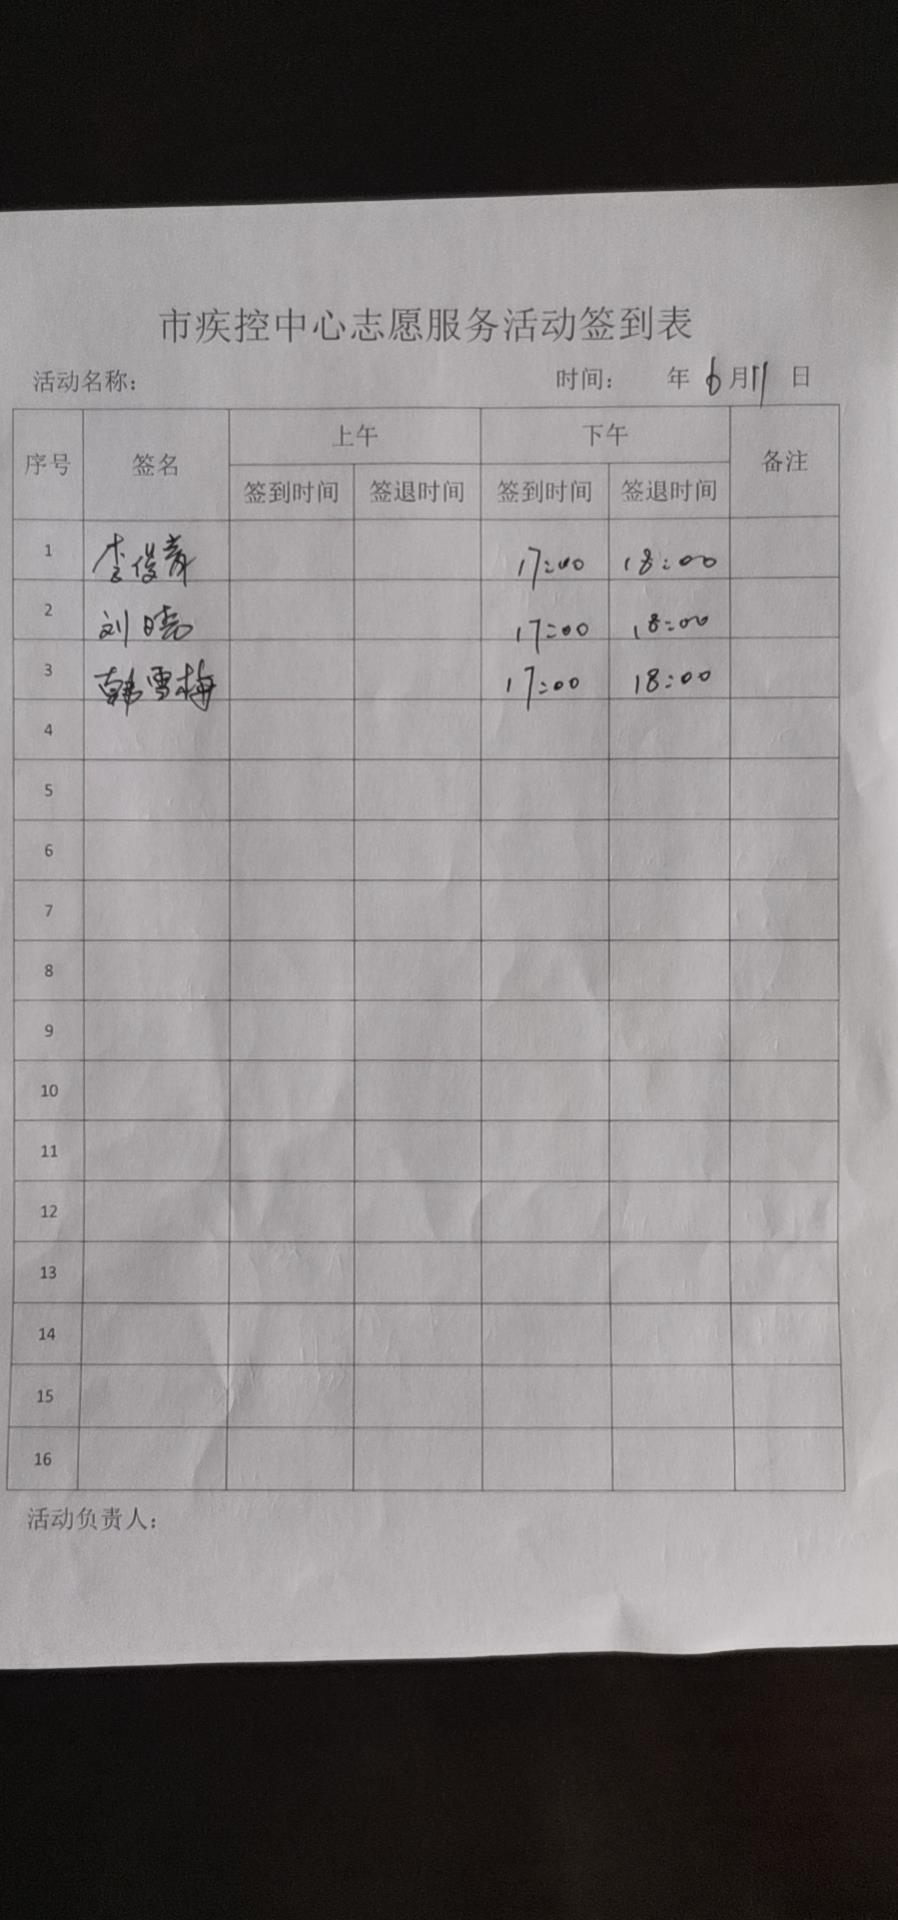 市疾控中心志愿服务活动签到表
活动名称： 时间： 年 6月11日
序号 签名 上午 下午 备注
签到时间 签退时间 签到时间 签退时间
1 李俊青 17:00 18:00
2 刘晓 17:00 18:00
3 韩雪梅 17:00 18:00
4
5
6
7
8
9
10
11
12
13
14
15
16
活动负责人：